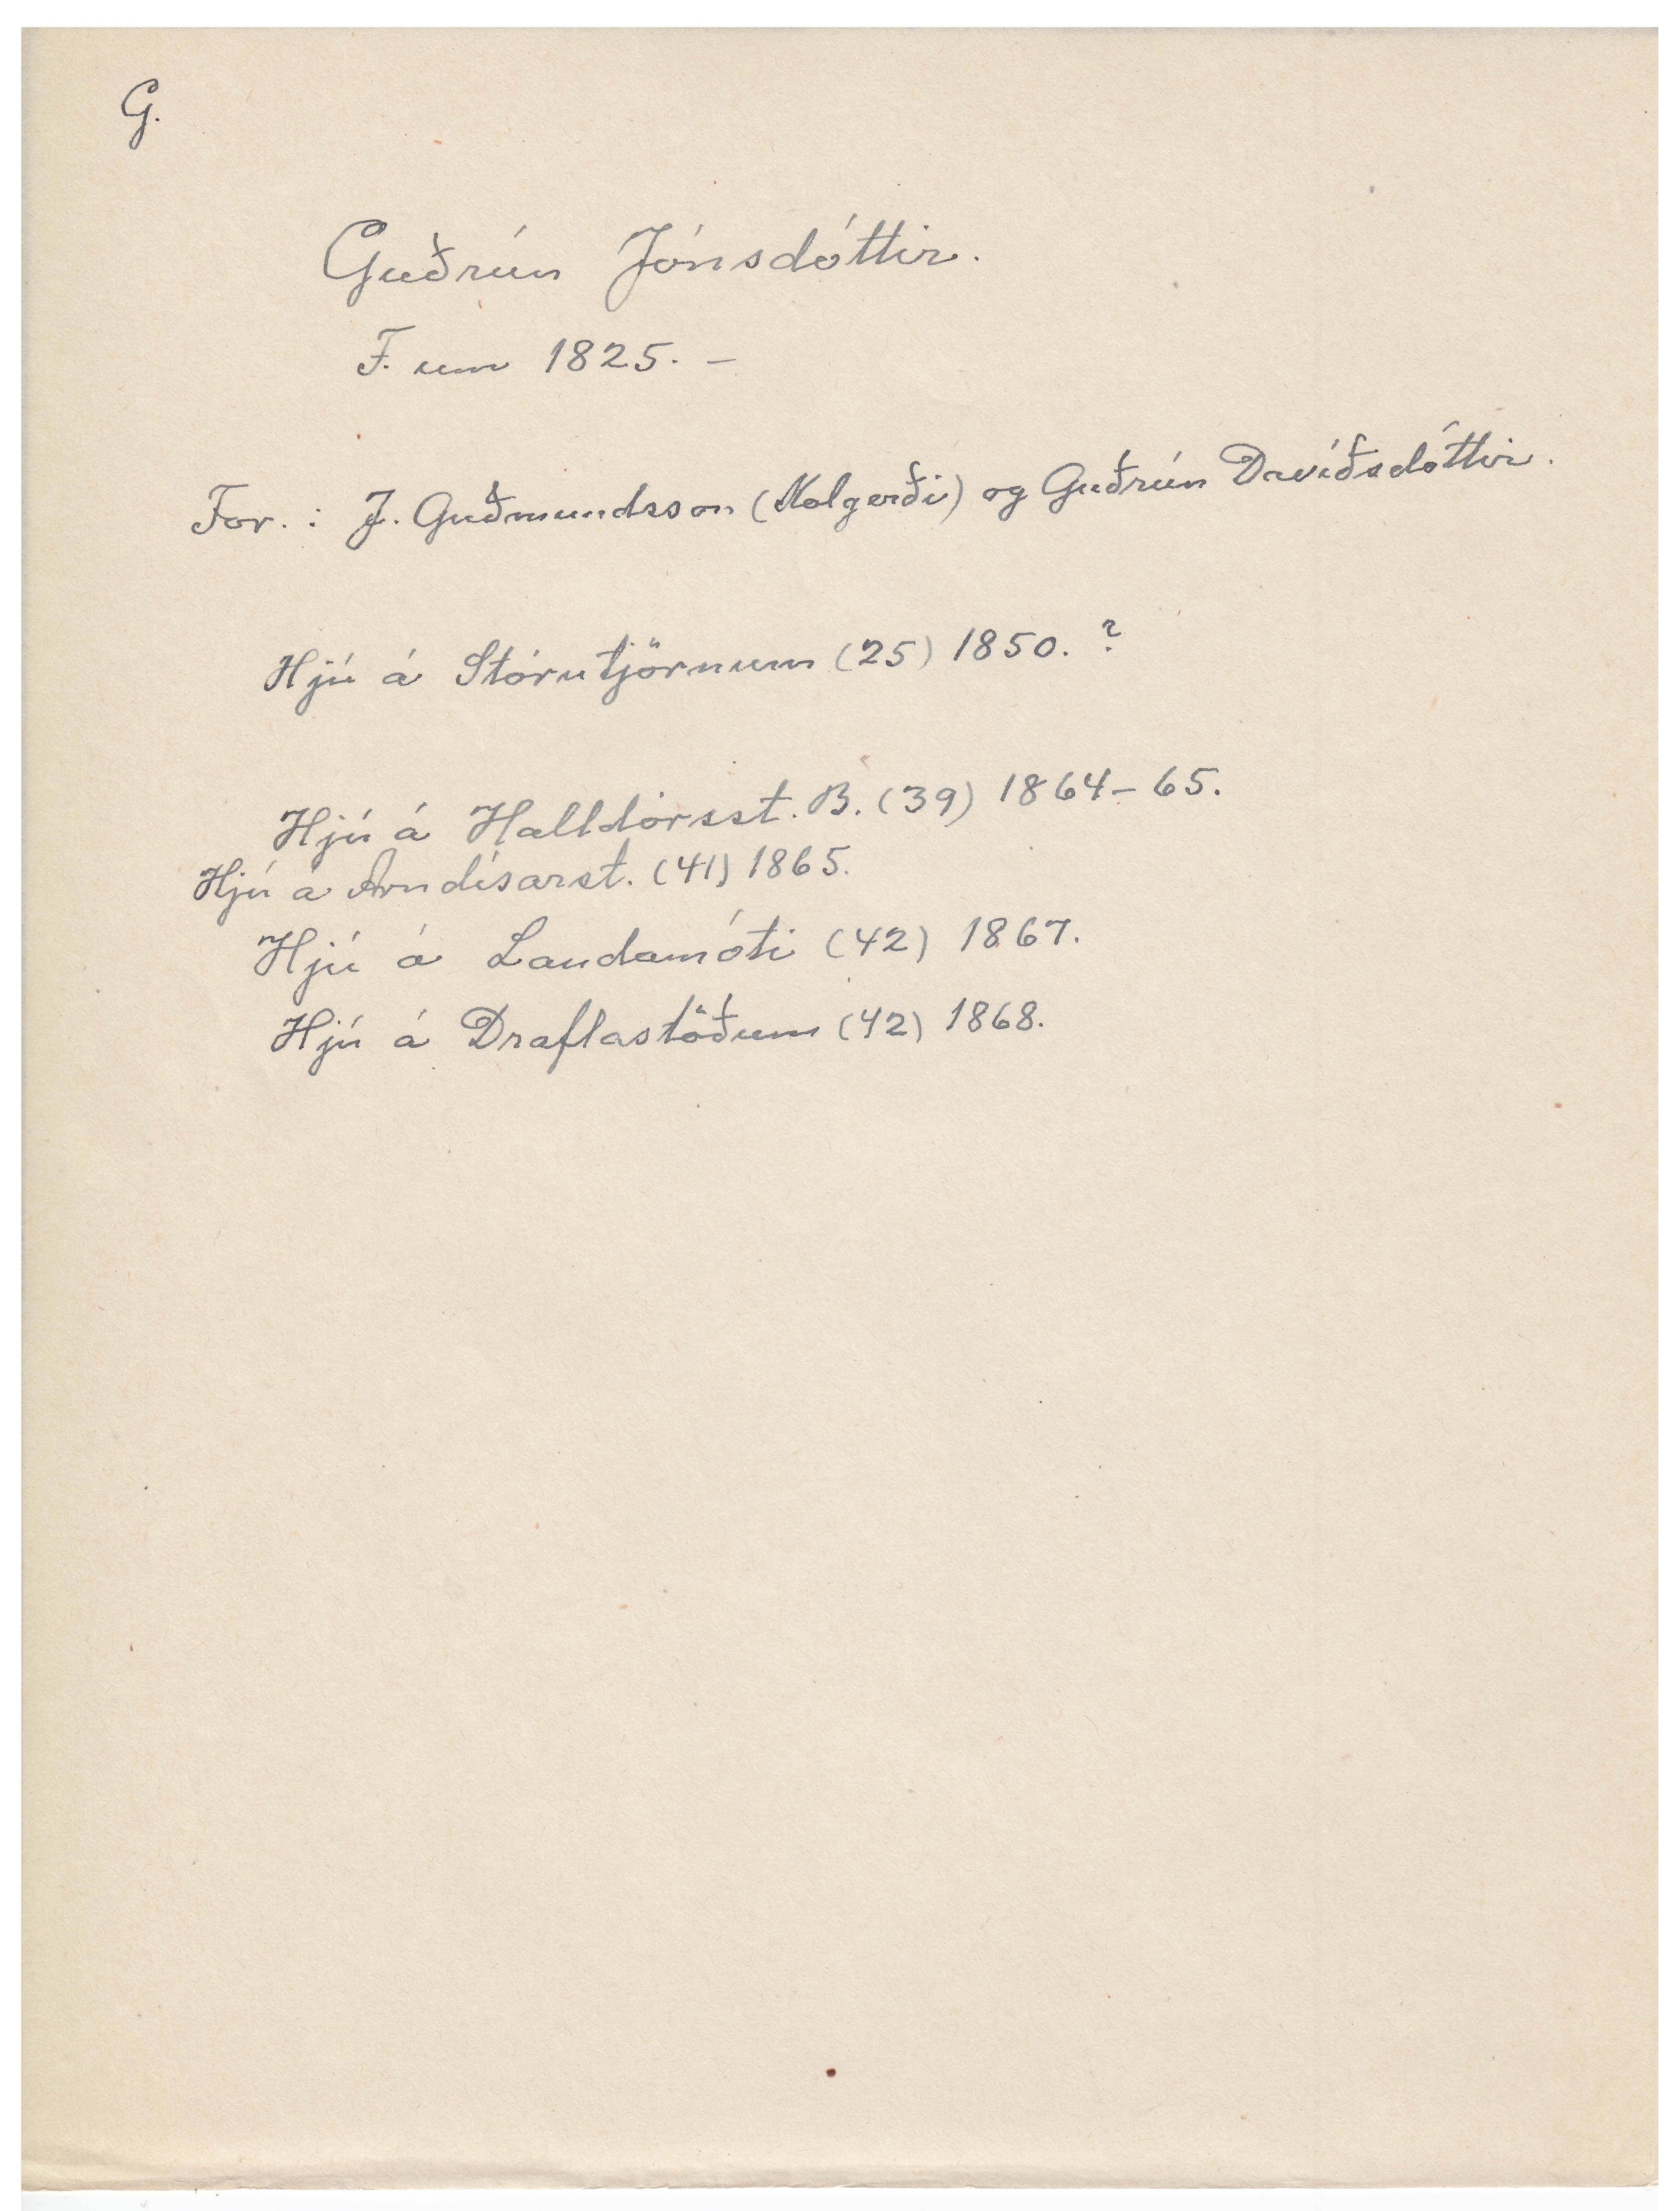 G.
Guðrún Jónsdóttir.
F. um 1825. –
For. : J. Guðmundsson (Kolgerði) og Guðrún Davíðsdóttir.
Hjú á Stórutjörnum (25) 1850. ?
Hjú á Halldórsst. B. (39) 1864–65.
Hjú á Arndísarst. (41) 1865.
Hjú á Landamóti (42) 1867.
Hjú á Draflastöðum (42) 1868.